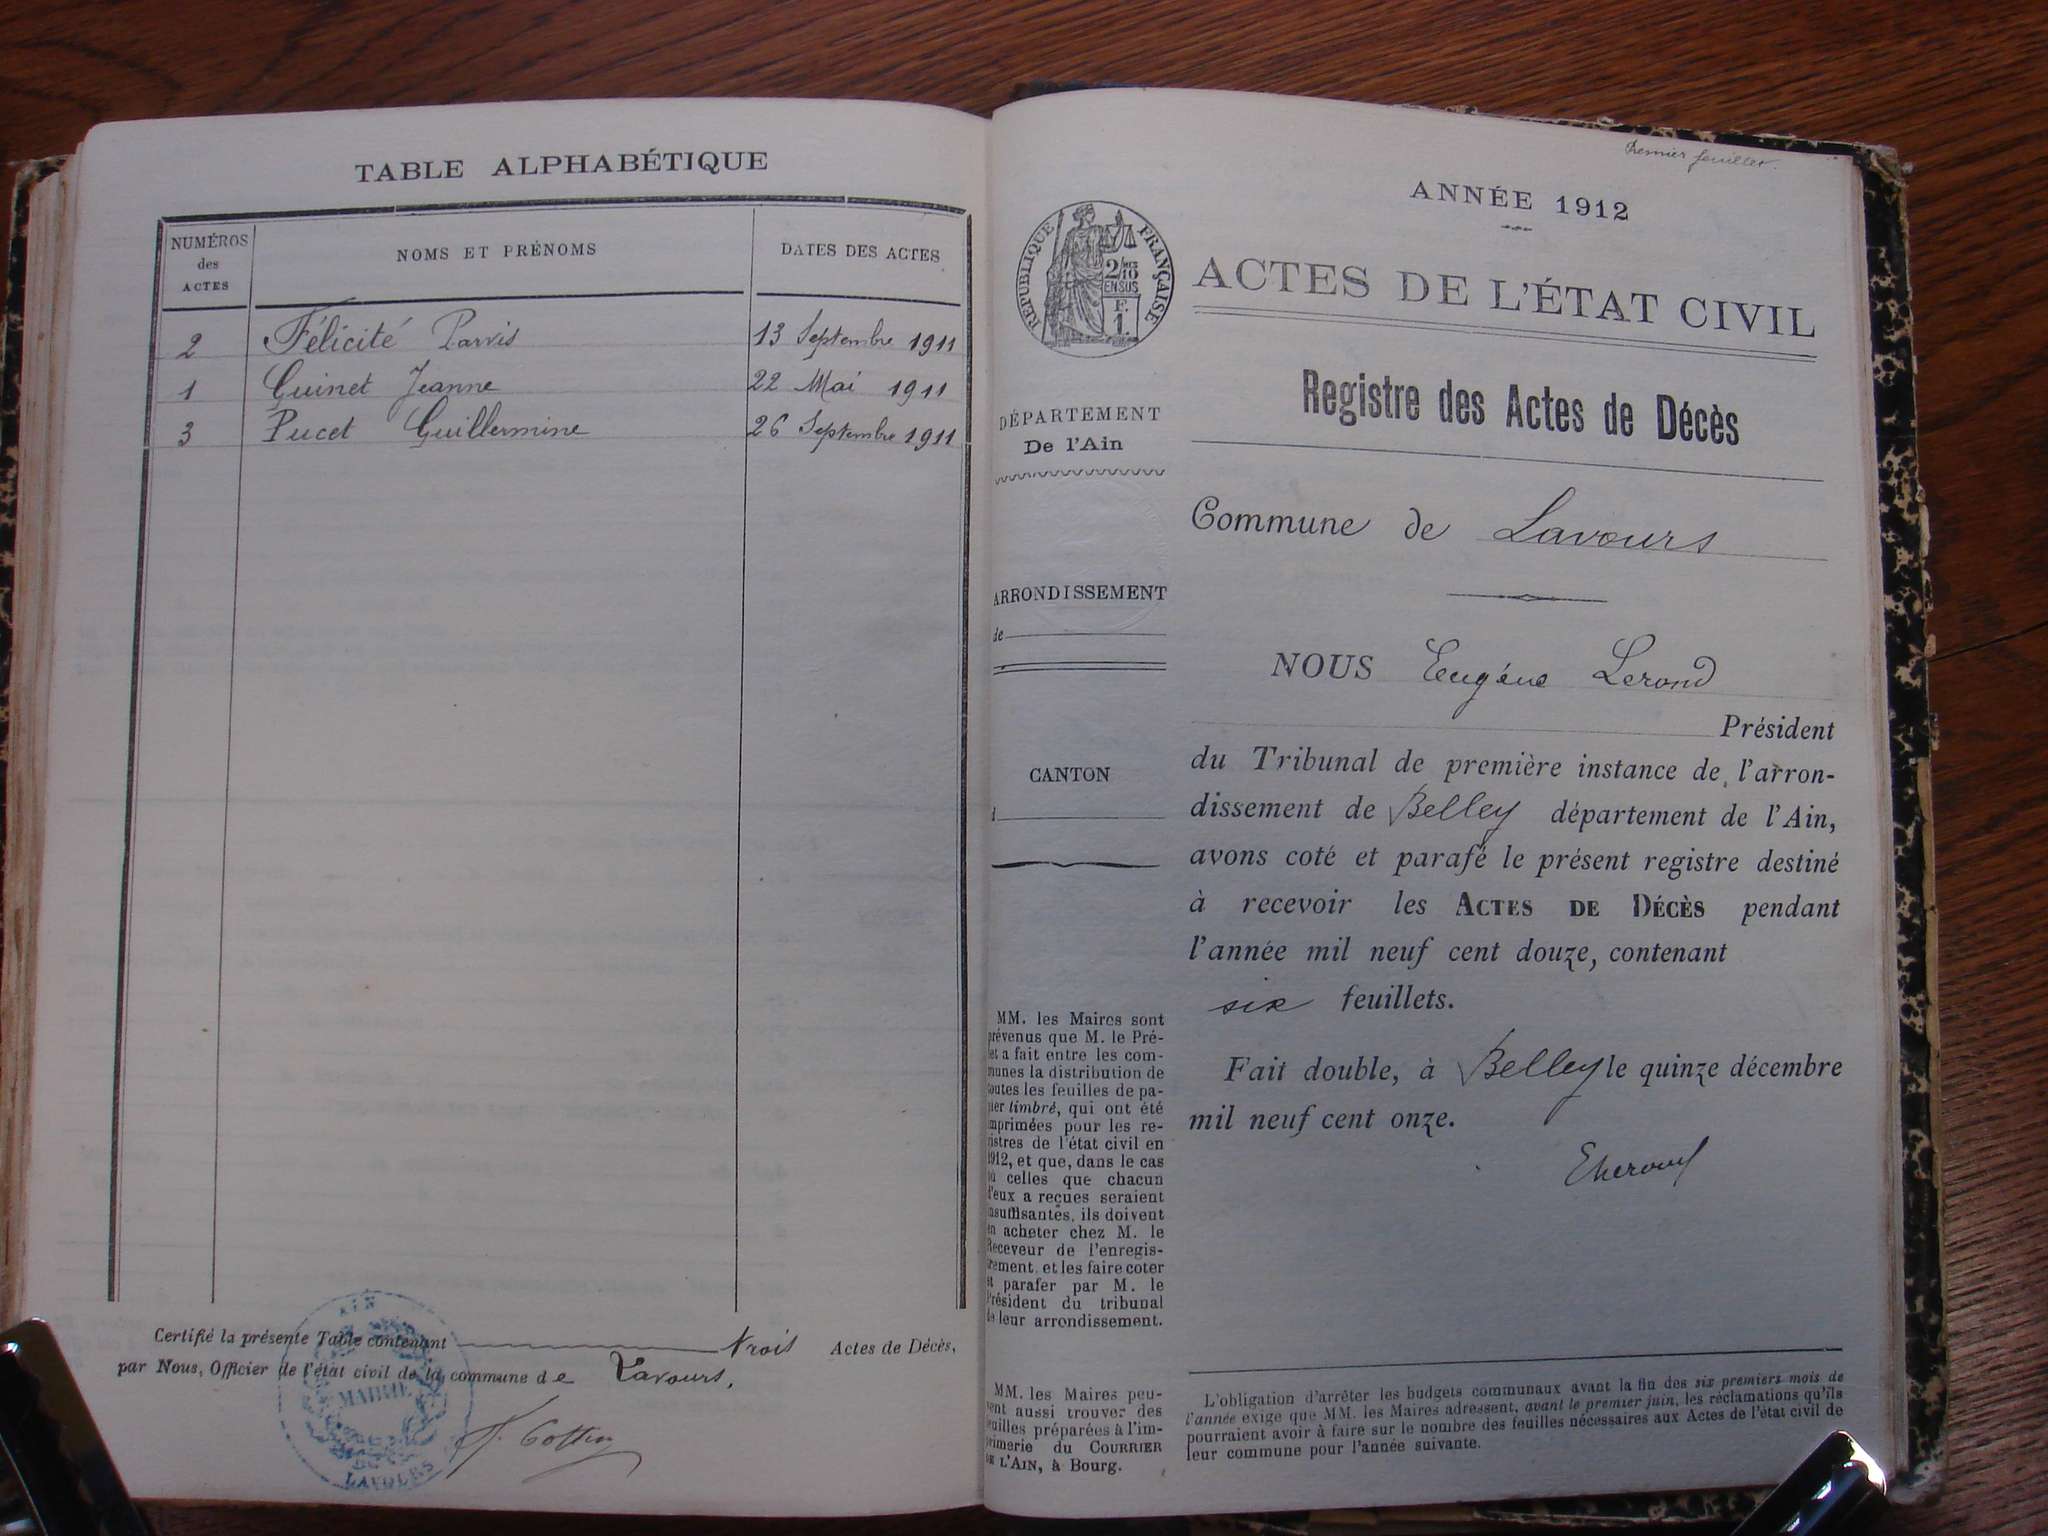 TABLE ALPHABÉTIQUE
NUMÉROS des ACTES
NOMS ET PRÉNOMS
DATES DES ACTES
2 Félicité Parvis 13 Septembre 1911
1 Guinet Jeanne 22 Mai 1911
3 Pucet Guillermine 26 Septembre 1911
Certifié la présente Table contenant trois Actes de Décès,
par Nous, Officier de l'état civil de la commune de Lavours.
AIN
MAIRIE
DE
LAVOURS
Premier feuillet.
ANNÉE 1912
RÉPUBLIQUE FRANÇAISE
2/10 EN SUS
F.
1.
ACTES DE L'ÉTAT CIVIL
Registre des Actes de Décès
DÉPARTEMENT
De l'Ain
Commune de Lavours
ARRONDISSEMENT
de
NOUS Eugène Lerond
Président
CANTON
du Tribunal de première instance de l'arron-
dissement de Belley département de l'Ain,
avons coté et parafé le présent registre destiné
à recevoir les ACTES DE DÉCÈS pendant
l'année mil neuf cent douze, contenant
six feuillets.
Fait double, à Belley le quinze décembre
mil neuf cent onze.
MM. les Maires sont
prévenus que M. le Pré-
fet a fait entre les com-
munes la distribution de
toutes les feuilles de pa-
pier timbré, qui ont été
imprimées pour les re-
gistres de l'état civil en
1912, et que, dans le cas
où celles que chacun
d'eux a reçues seraient
insuffisantes, ils doivent
en acheter chez M. le
Receveur de l'enregis-
trement, et les faire coter
et parafer par M. le
Président du tribunal
de leur arrondissement.
MM. les Maires peu-
vent aussi trouver des
feuilles préparées à l'im-
primerie du COURRIER
DE L'AIN, à Bourg.
L'obligation d'arrêter les budgets communaux avant la fin des six premiers mois de
l'année exige que MM. les Maires adressent, avant le premier juin, les réclamations qu'ils
pourraient avoir à faire sur le nombre des feuilles nécessaires aux Actes de l'état civil de
leur commune pour l'année suivante.